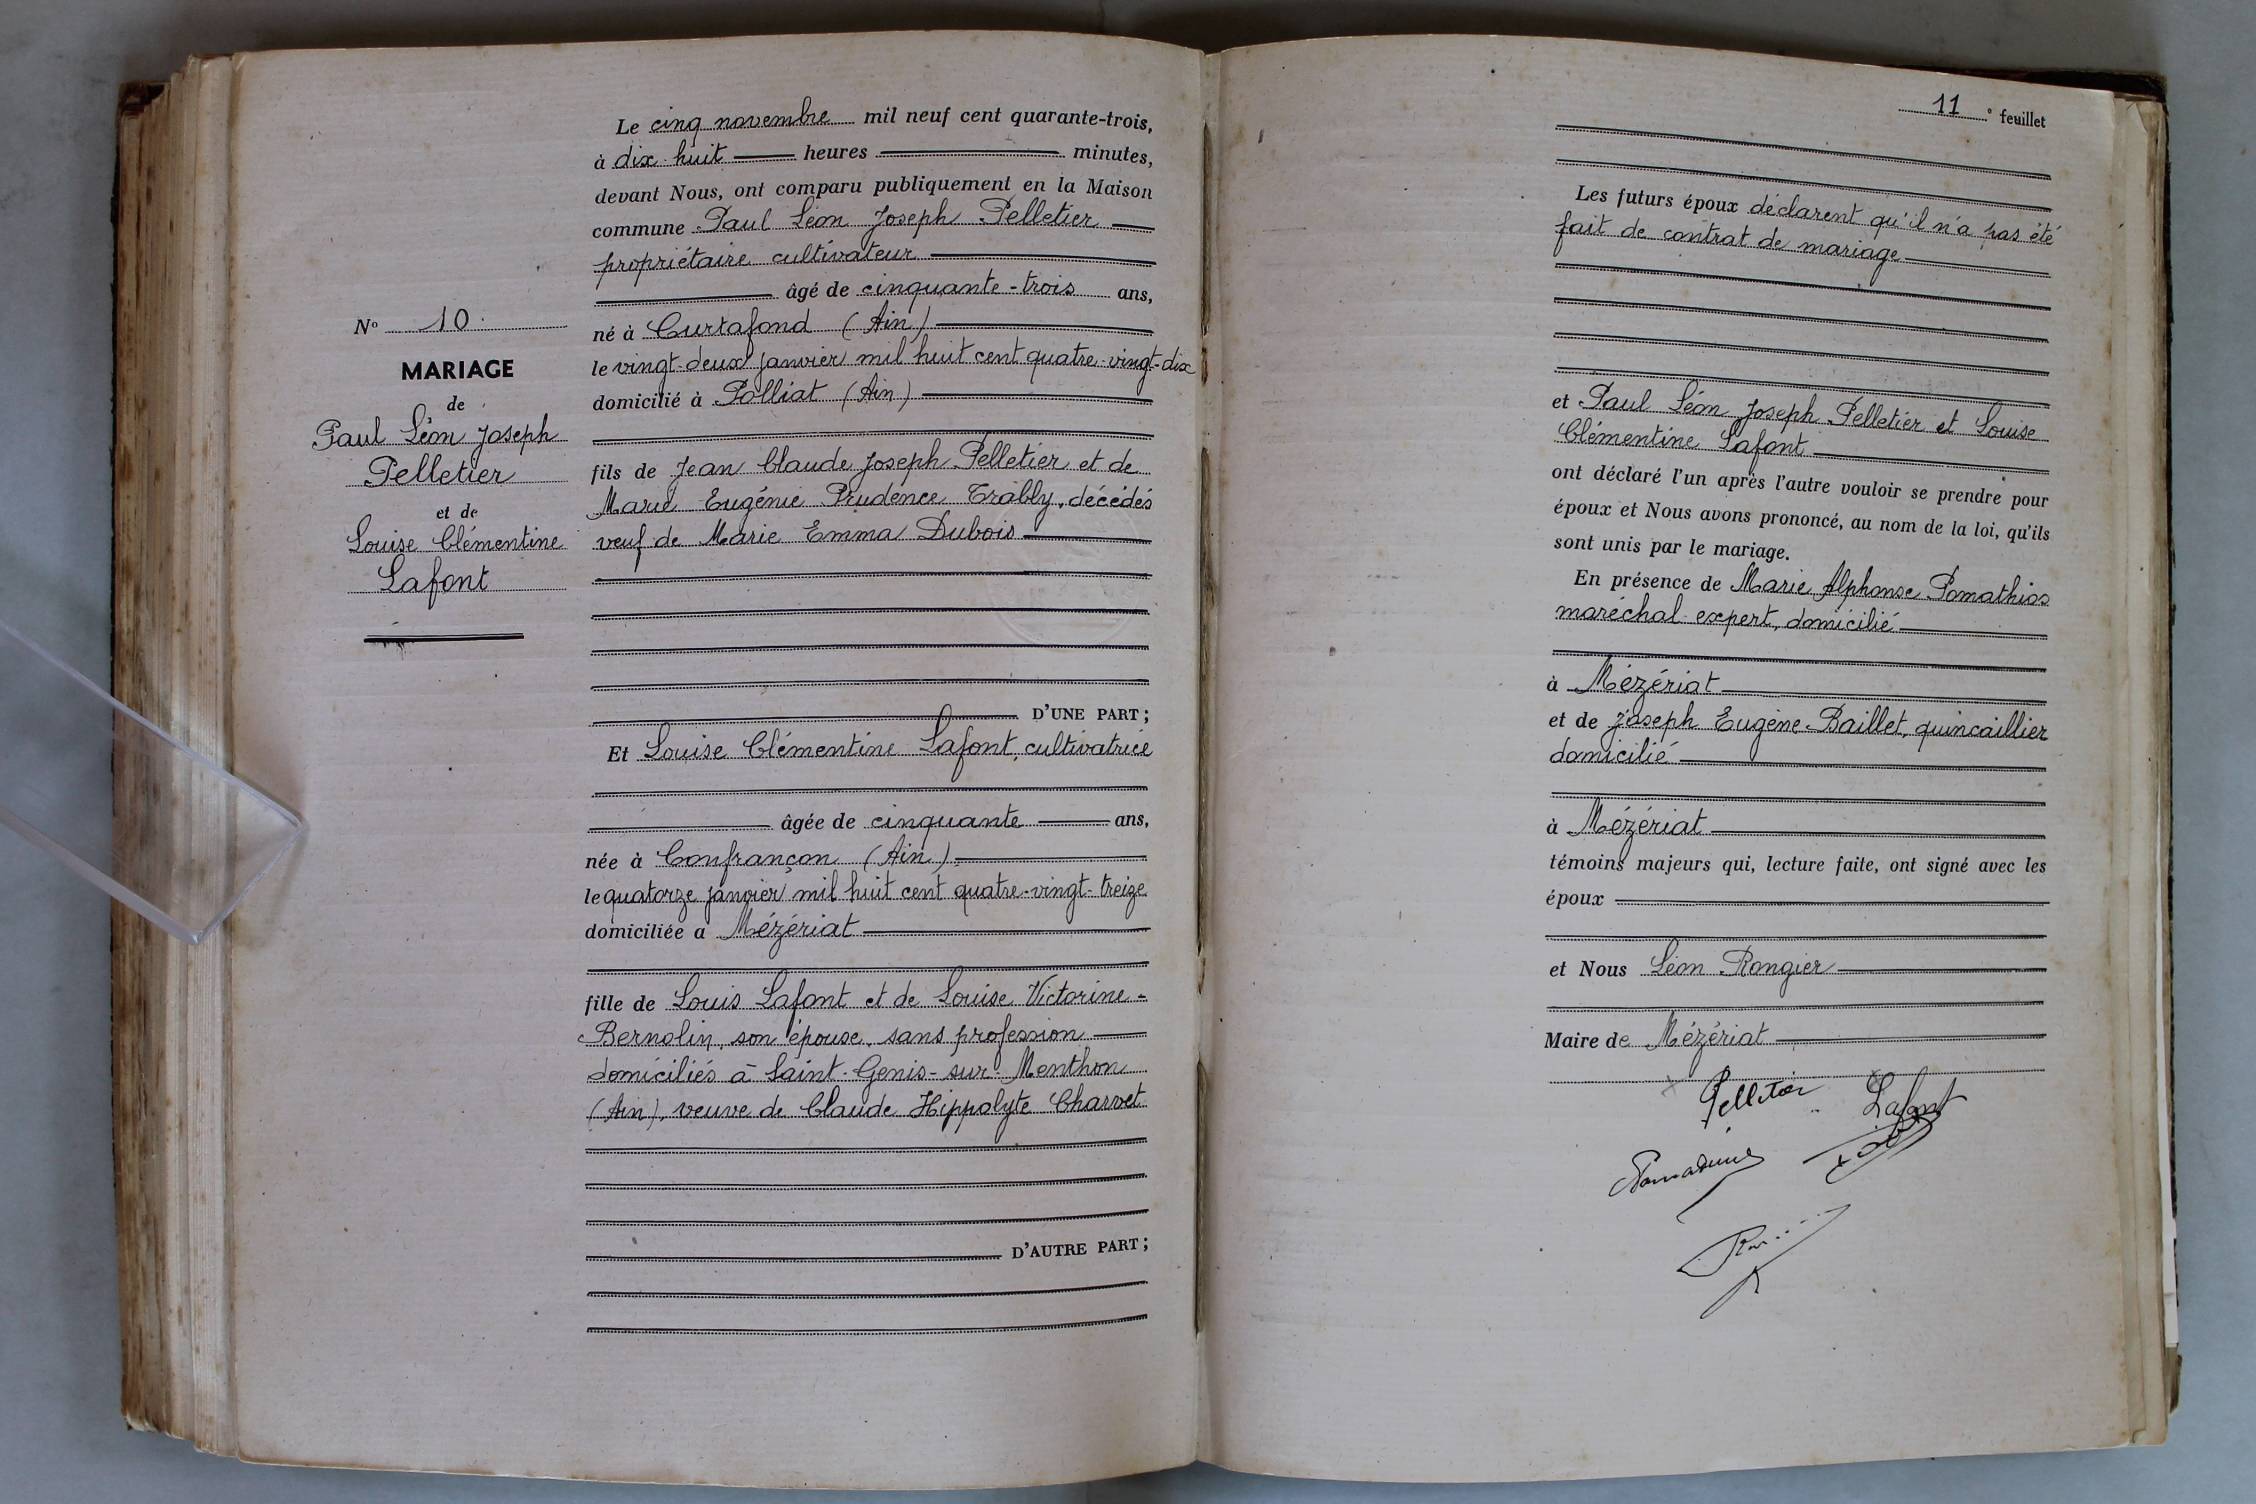 Le cinq novembre mil neuf cent quarante-trois,
à dix-huit heures minutes,
devant Nous, ont comparu publiquement en la Maison
commune Paul Léon Joseph Pelletier
propriétaire cultivateur
âgé de cinquante-trois ans,
né à Curtafond (Ain)
le vingt-deux janvier mil huit cent quatre-vingt-dix
domicilié à Polliat (Ain)
fils de Jean Claude Joseph Pelletier et de
Marie Eugénie Prudence Trably, décédés
veuf de Marie Emma Dubois
D'UNE PART;
Et Louise Clémentine Lafont, cultivatrice
âgée de cinquante ans,
née à Confrançon (Ain)
le quatorze janvier mil huit cent quatre-vingt-treize
domiciliée a Mézériat
fille de Louis Lafont et de Louise Victorine
Bernolin, son épouse, sans profession
domiciliés à Saint-Genis-sur-Menthon
(Ain), veuve de Claude Hippolyte Charvet
D'AUTRE PART;
N° 10
MARIAGE
de
Paul Léon Joseph
Pelletier
et de
Louise Clémentine
Lafont
11e feuillet
Les futurs époux déclarent qu'il n'a pas été
fait de contrat de mariage
et Paul Léon Joseph Pelletier et Louise
Clémentine Lafont
ont déclaré l'un après l'autre vouloir se prendre pour
époux et Nous avons prononcé, au nom de la loi, qu'ils
sont unis par le mariage.
En présence de Marie Alphonse Pomathios
maréchal-expert, domicilié
à Mézériat
et de Joseph Eugène Baillet, quincaillier
domicilié
à Mézériat
témoins majeurs qui, lecture faite, ont signé avec les
époux
et Nous Léon Rongier
Maire de Mézériat
Pelletier Lafont